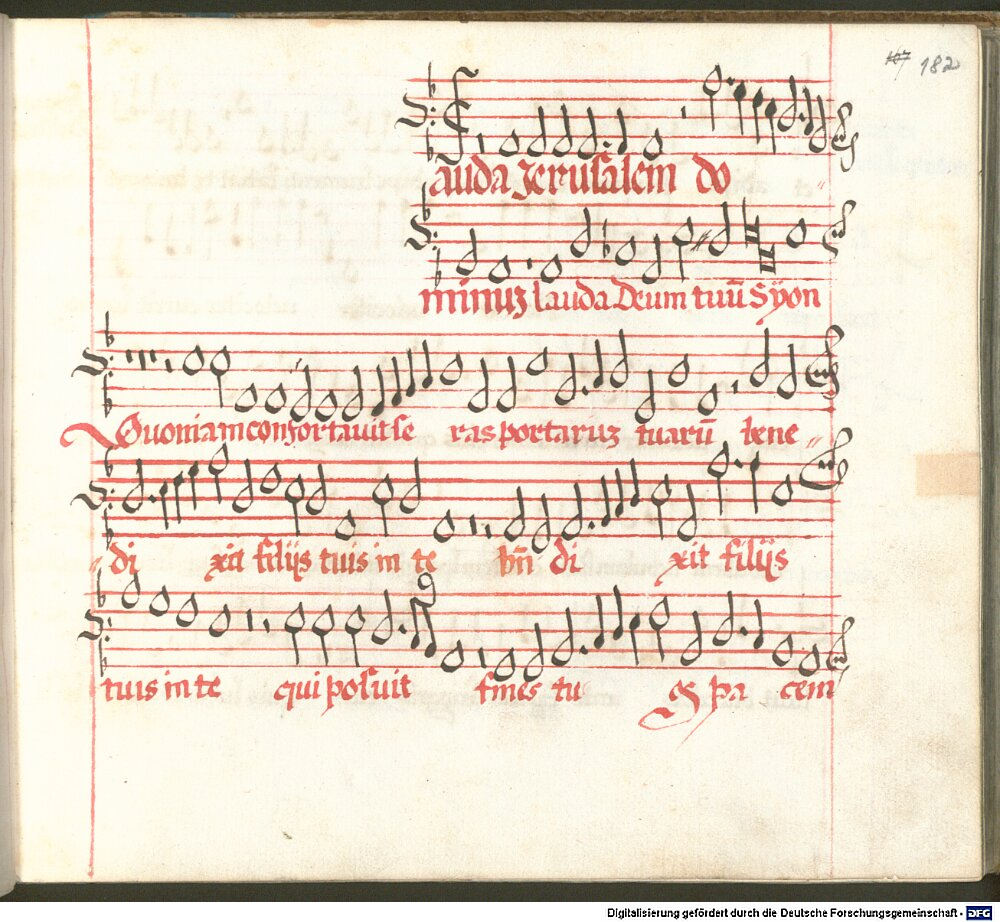 182
auda Jerusalem do
minuz lauda Deum tuū Syon
Quoniam confortavit se ras portaruz tuarū bene
di xit filijs tuis in te bn̄ di xit filijs
tuis in te qui posuit fines tu pa cem
Digitalisierung gefördert durch die Deutsche Forschungsgemeinschaft - DFG